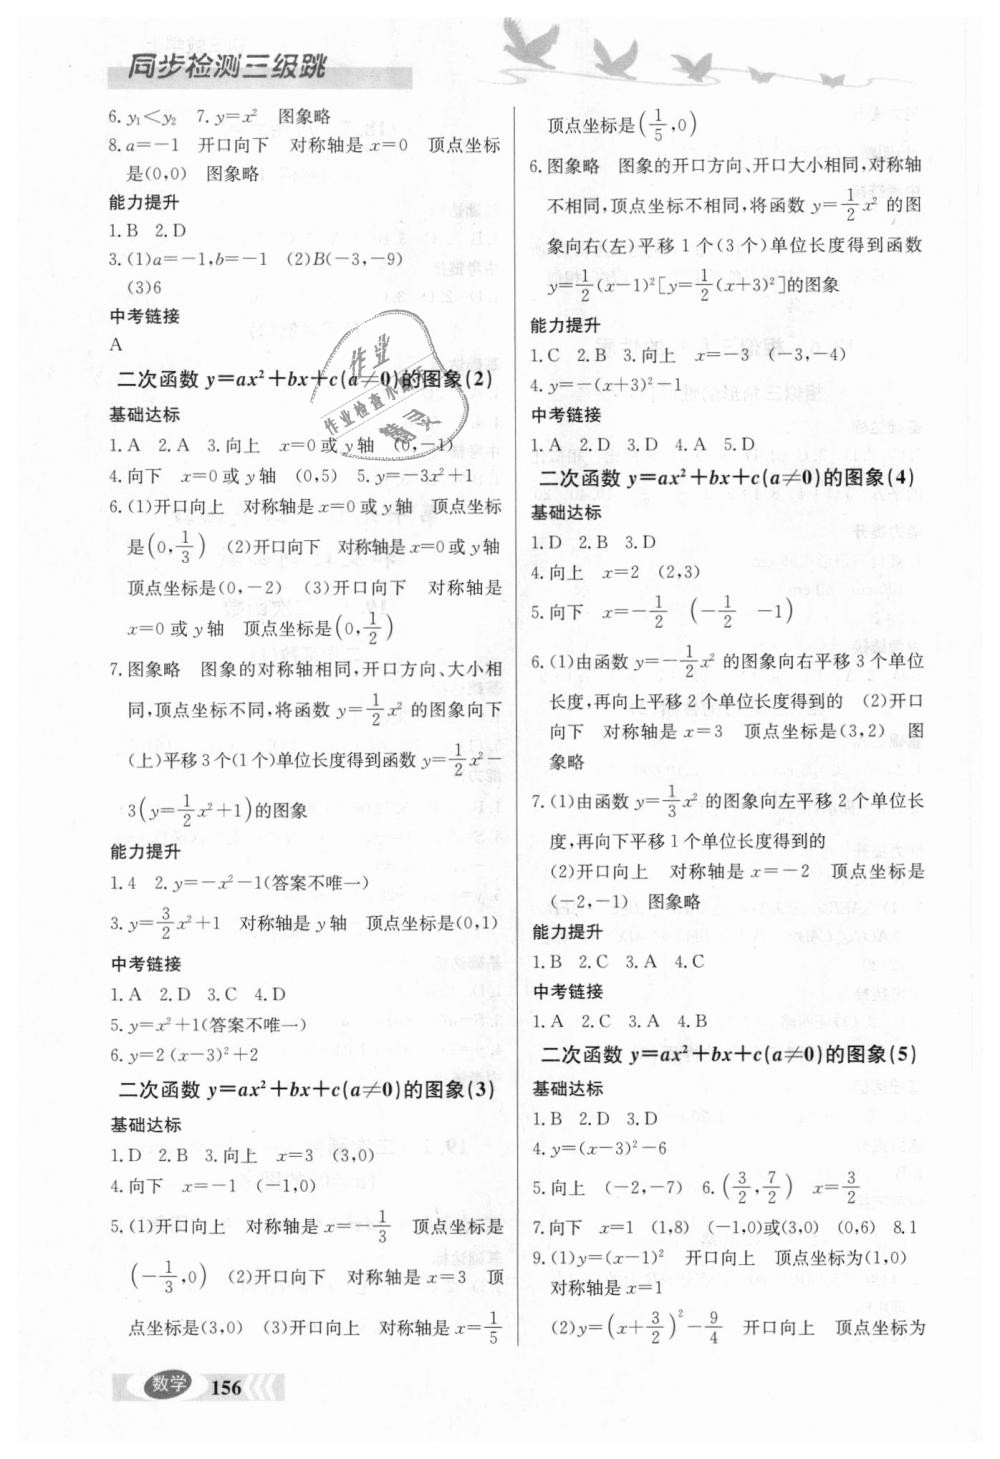 同步检测三级跳
6. y₁<y₂ 7. y=x² 图象略
8. a=-1 开口向下 对称轴是 x=0 顶点坐标
是(0,0) 图象略
能力提升
1. B 2. D
3. (1)a=-1,b=-1 (2)B(-3,-9)
(3)6
中考链接
A
二次函数 y=ax²+bx+c(a≠0)的图象(2)
基础达标
1. A 2. A 3. 向上 x=0 或 y 轴 (0,-1)
4. 向下 x=0 或 y 轴 (0,5) 5. y=-3x²+1
6. (1)开口向上 对称轴是 x=0 或 y 轴 顶点坐标
是(0,1/3) (2)开口向下 对称轴是 x=0 或 y 轴
顶点坐标是(0,-2) (3)开口向下 对称轴是
x=0 或 y 轴 顶点坐标是(0,1/2)
7. 图象略 图象的对称轴相同,开口方向、大小相
同,顶点坐标不同,将函数 y=1/2x² 的图象向下
(上)平移 3 个(1 个)单位长度得到函数 y=1/2x²-
3(y=1/2x²+1)的图象
能力提升
1. 4 2. y=-x²-1(答案不唯一)
3. y=3/2x²+1 对称轴是 y 轴 顶点坐标是(0,1)
中考链接
1. A 2. D 3. C 4. D
5. y=x²+1(答案不唯一)
6. y=2(x-3)²+2
二次函数 y=ax²+bx+c(a≠0)的图象(3)
基础达标
1. D 2. B 3. 向上 x=3 (3,0)
4. 向下 x=-1 (-1,0)
5. (1)开口向上 对称轴是 x=-1/3 顶点坐标是
(-1/3,0) (2)开口向下 对称轴是 x=3 顶
点坐标是(3,0) (3)开口向上 对称轴是 x=1/5
顶点坐标是(1/5,0)
6. 图象略 图象的开口方向、开口大小相同,对称轴
不相同,顶点坐标不相同,将函数 y=1/2x² 的图
象向右(左)平移 1 个(3 个)单位长度得到函数
y=1/2(x-1)²[y=1/2(x+3)²]的图象
能力提升
1. C 2. B 3. 向上 x=-3 (-3,-4)
4. y=-(x+3)²-1
中考链接
1. A 2. D 3. D 4. A 5. D
二次函数 y=ax²+bx+c(a≠0)的图象(4)
基础达标
1. D 2. B 3. D
4. 向上 x=2 (2,3)
5. 向下 x=-1/2 (-1/2 -1)
6. (1)由函数 y=-1/2x² 的图象向右平移 3 个单位
长度,再向上平移 2 个单位长度得到的 (2)开口
向下 对称轴是 x=3 顶点坐标是(3,2) 图
象略
7. (1)由函数 y=1/3x² 的图象向左平移 2 个单位长
度,再向下平移 1 个单位长度得到的
(2)开口向上 对称轴是 x=-2 顶点坐标是
(-2,-1) 图象略
能力提升
1. B 2. C 3. A 4. C
中考链接
1. A 2. C 3. A 4. B
二次函数 y=ax²+bx+c(a≠0)的图象(5)
基础达标
1. B 2. D 3. D
4. y=(x-3)²-6
5. 向上 (-2,-7) 6. (3/2,7/2) x=3/2
7. 向下 x=1 (1,8) (-1,0)或(3,0) (0,6) 8. 1
9. (1)y=(x-1)² 开口向上 顶点坐标为(1,0)
对称轴是 x=1
(2)y=(x+3/2)²-9/4 开口向上 顶点坐标为
数学 156
作业
作业检查小